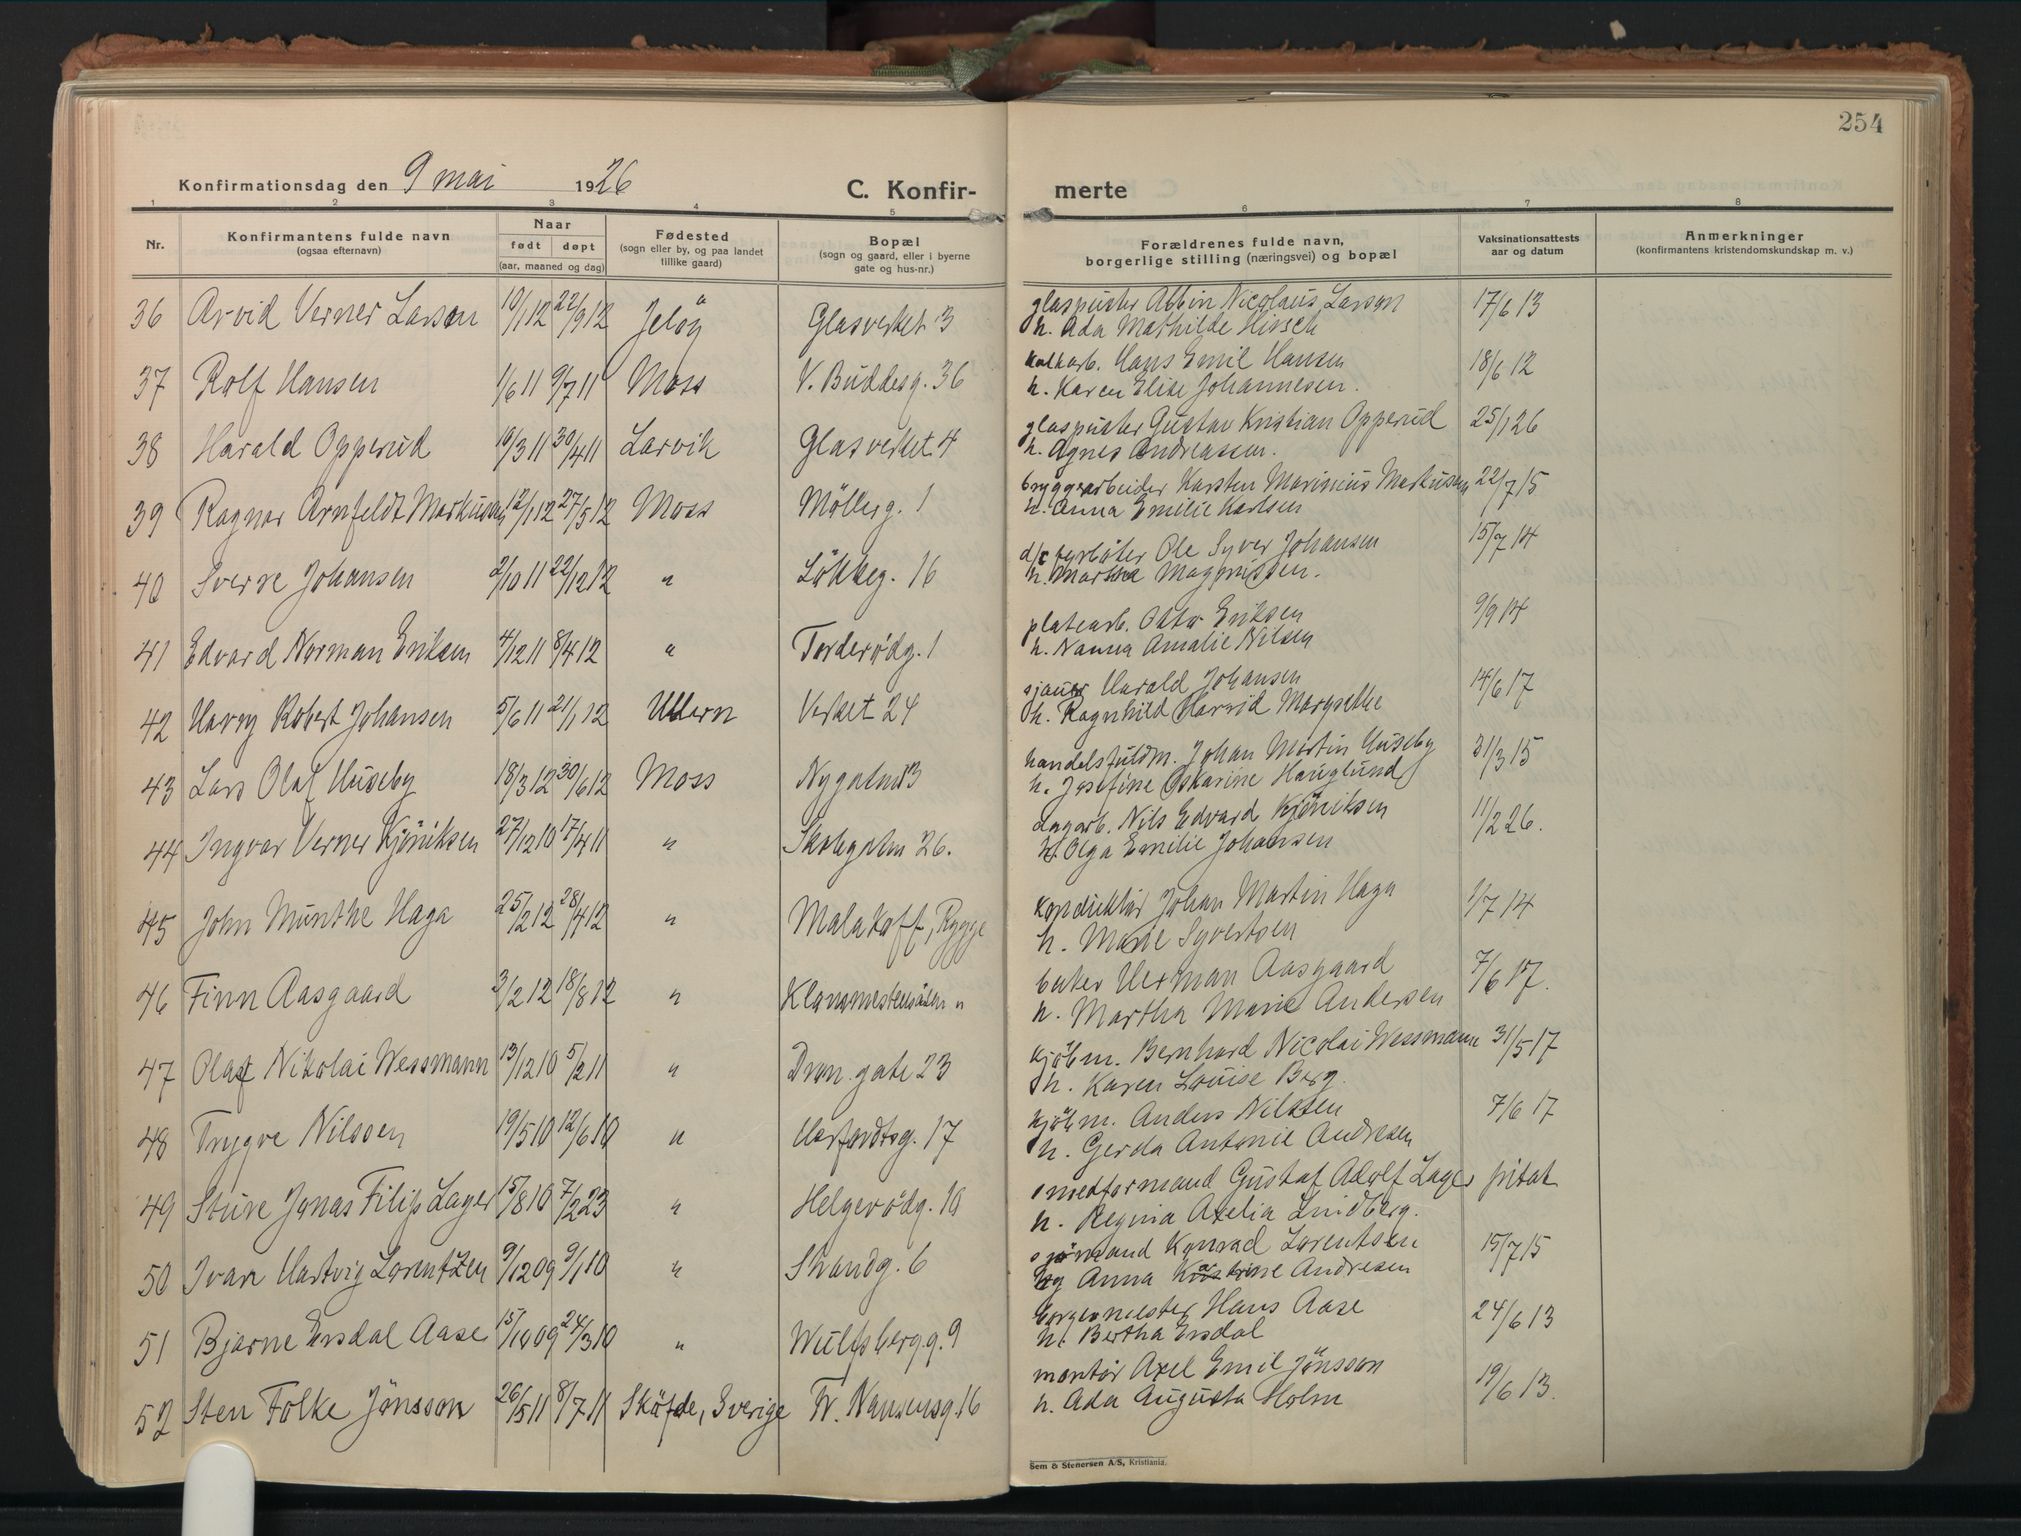 254
Konfirmationsdag den 9 mai 1926
C. Konfir- merte
1 2 3 4 5 6 7 8
Nr.
Konfirmantens fulde navn
(ogsaa efternavn)
Naar
født døpt
(aar, maaned og dag)
Fødested
(sogn eller by, og paa landet
tillike gaard)
Bopæl
(sogn og gaard, eller i byerne
gate og hus-nr.)
Forældrenes fulde navn,
borgerlige stilling (næringsvei) og bopæl
Vaksinationsattests
aar og datum
Anmerkninger
(konfirmantens kristendomskundskap m. v.)
36 Arvid Verner Larson 10/1 12 22/9 12 Jelöy Glasverket 3 glaspuster Albin Nicolaus Larson 17/6 13
h. Ada Mathilde Hirsch
37 Rolf Hansen 1/6 11 9/7 11 Moss V. Buddesg. 36 kalkarb. Hans Emil Hansen 18/6 12
h. Karen Elise Johannesen.
38 Harald Opperud 10/3 11 30/4 11 Larvik Glasverket 4 glaspuster Gustav Kristian Opperud 25/1 26
h. Agnes Andreassen.
39 Ragnar Arnfeldt Markusen 12/1 12 27/5 12 Moss Möllerg. 1 bryggearbeider Karsten Marinius Markusen 22/7 15
h. Anna Emilie Karlsen
40 Sverre Johansen 2/10 11 22/12 12 " Lökkeg. 16 Ole Syver Johansen 15/7 14
h. Marthe Magnussen.
41 Edvard Norman Eriksen 4/12 11 8/4 12 " Torderødg. 1 platearb. Otto Eriksen 9/9 14
h. Nanna Amalie Nilsen
42 Harry Robert Johansen 5/6 11 21/1 12 Ullern Verket 24 sjauer Harald Johansen 14/6 17
h. Ragnhild Harrid Margrethe
43 Lars Olaf Huseby 18/3 12 30/6 12 Moss Nygaten 13 handelsfuldm. Johan Martin Huseby 31/3 15
h. Josefine Oskarine Hauglund
44 Ingvar Verner Kjöniksen 27/12 10 17/4 11 " Skolegaten 26. dagarb. Nils Edvard Kjöniksen 11/2 26.
h. Olga Emilie Johansen
45 John Munthe Haga 25/2 12 28/4 12 " Malakoff, Rygge konduktör Johan Martin Haga 1/7 14
h. Marie Syvertsen
46 Finn Aasgaard 3/2 12 18/8 12 " " Herman Aasgaard 7/6 17.
h. Martha Marie Andersen
47 Olaf Nikolai Wessmann 13/12 10 5/2 11 " Dron. gate 23 kjöbm. Bernhard Nicolai Wessmann 31/5 17
h. Karen Louise Berg.
48 Trygve Nilssen 19/5 10 12/6 10 " 17 kjöbm. Anders Nilssen 7/6 17
h. Gerda Antonie Andresen
49 Sture Jonas Filip Lager 15/8 10 7/2 23 " Helgerödg. 10 smedformand Gustaf Adolf Lager fritat
h. Regina Axelia Lindberg.
50 Ivar Hartvig Lorentzen 9/12 09 9/1 10 " Strandg. 6 sjömand Konrad Lorentsen 15/7 15
og Anna Andresen
51 Bjarne Ersdal Aase 15/10 09 24/3 10 " Wulfsbergg. 9 borgermester Hans Aase 24/6 13
h. Bertha Ersdal
52 Sten Folke Jönsson 26/5 11 8/7 11 Sköfde, Sverige Fr. Nansensg. 16 montör Axel Emil Jönsson 19/6 13.
h. Ada Augusta Holm
Sem & Stenersen A/S, Kristiania.